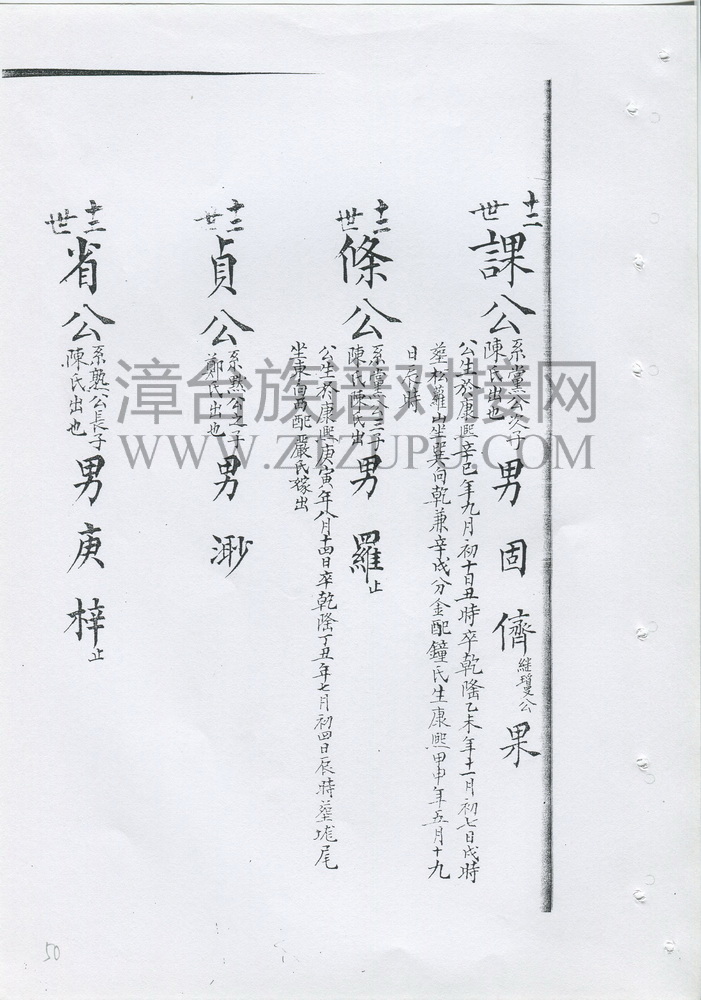 十二世
課公
系黨公次子
陳氏出也
男 固 儕 継瓊公 果
公生於康熙辛巳年九月初十日丑時卒乾隆乙未年十一月初七日戌時
塟松蘿山坐巽向乾兼辛戌分金配鐘氏生康熙甲申年五月十九
日辰時
十二世
條公
三子
陳氏陳氏出
男 羅 止
公生於康熙庚寅年八月十四日卒乾隆丁丑年七月初四日辰時塟壠尾
坐東向西配嚴氏嫁出
十二世
貞公
系默公之子
鄭氏出也
男 渺
十二世
省公
系熟公長子
陳氏出也
男 庚 梓 止
漳台族谱对接网
WWW.ZTZUPU.COM
50